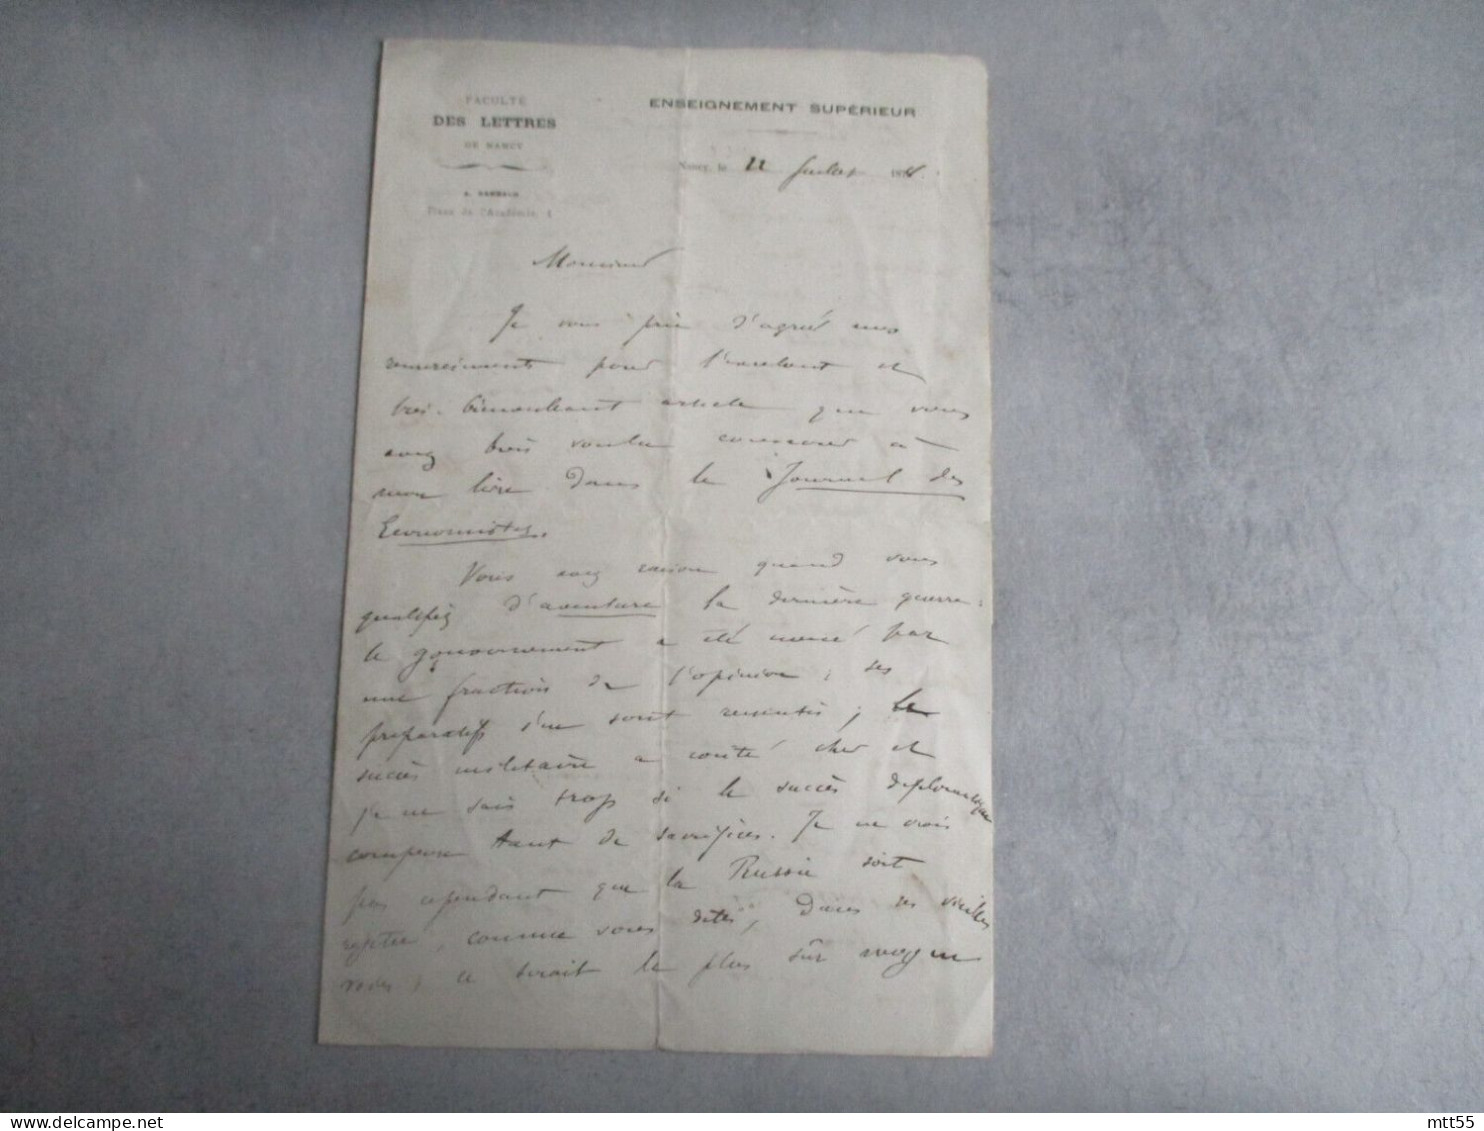 FACULTÉ
DES LETTRES
DE NANCY
ENSEIGNEMENT SUPÉRIEUR
Nancy, le 22 Juillet 1878.
A. RAMBAUD
Place de l'Académie, 1
Monsieur
Je vous prie d'agréer mes
remerciments pour l'excellent et
très-bienveillant article que vous
avez bien voulu consacrer à
mon livre dans le Journal des
Economistes.
Vous avez raison quand vous
qualifiez d'aventure la dernière guerre:
le gouvernement a été mené par
une fraction de l'opinion; ses
préparatifs s'en sont ressentis; le
succès militaire a coûté cher et
je ne sais trop si le succès diplomatique
compense tant de sacrifices. Je ne crois
pas cependant que la Russie soit
rejetée, comme vous dites, dans ses vieilles
voies; ce serait le plus sûr moyen
mtt55